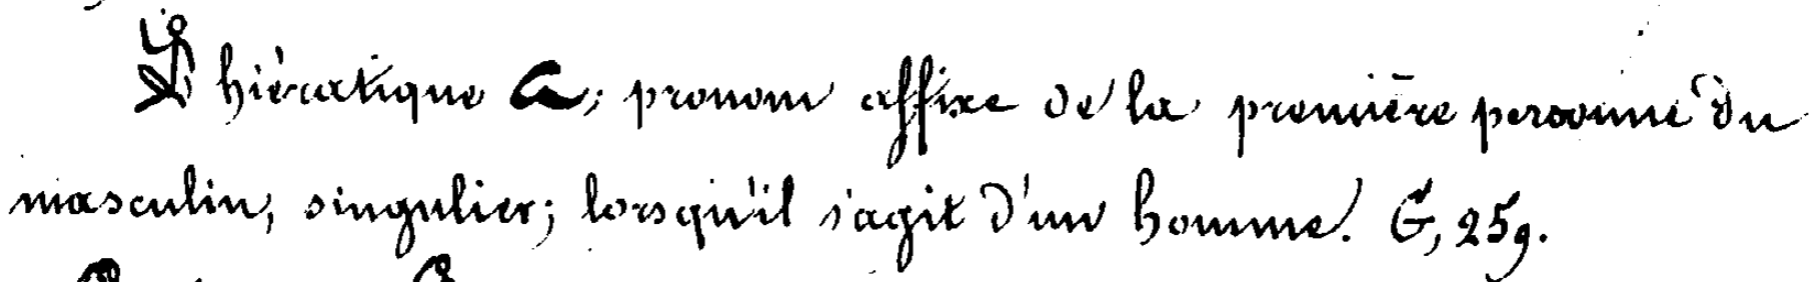 𓀀 hiératique ; pronom affixe de la première personne du
masculin, singulier ; lorsqu'il s'agit d'un homme. G, 259.